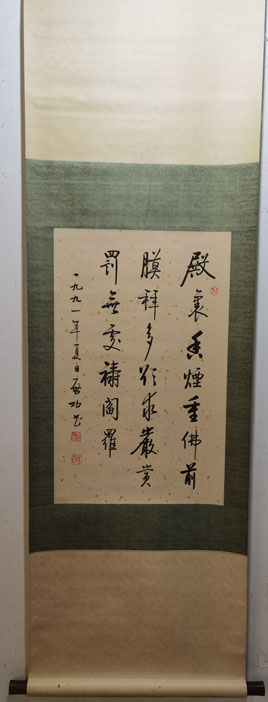 殿裏香煙重佛前
膜拜多欲求嚴賞
罰無處禱閻羅
一九九一年夏日啟功書